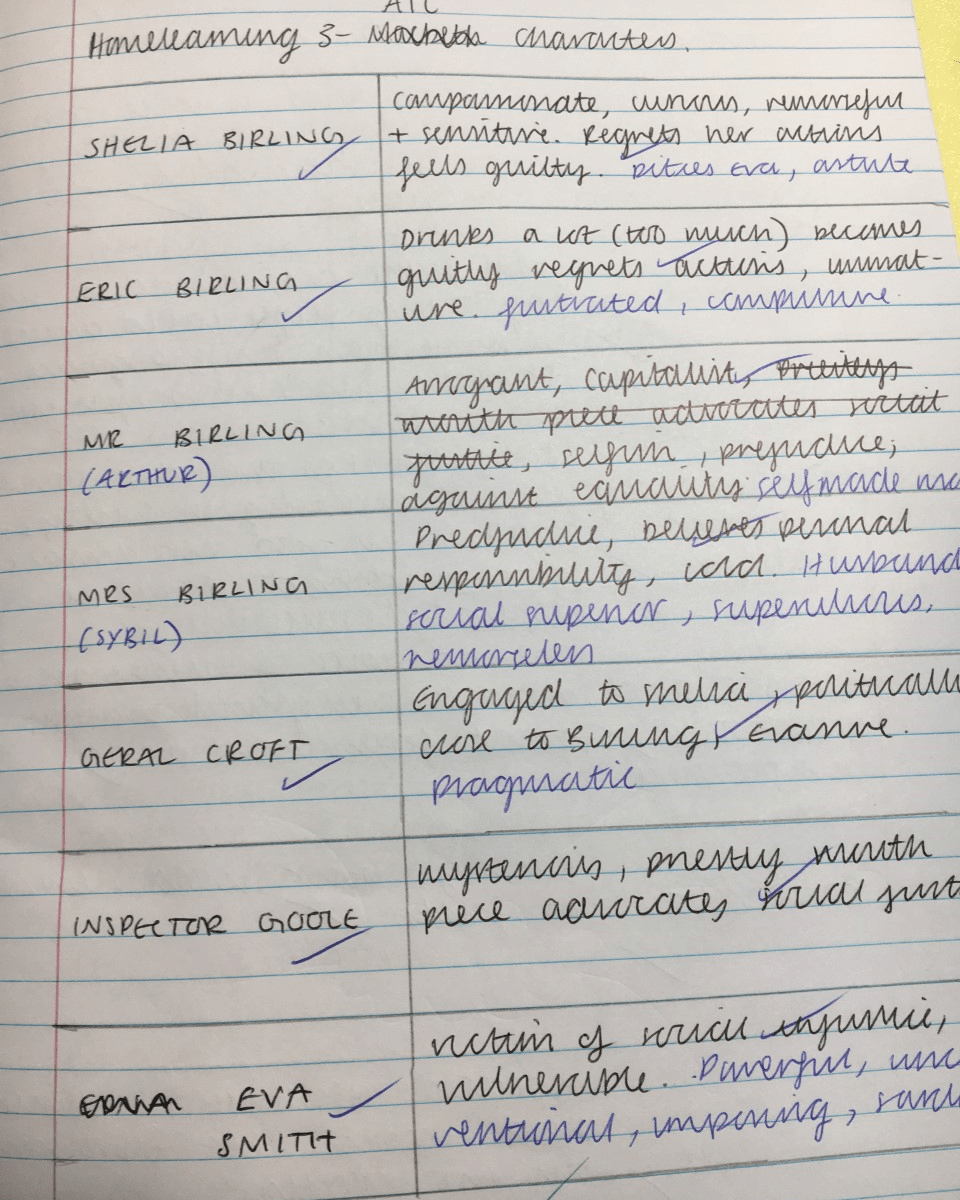 AIC
Homelearning 3- Macbeth characters.
SHELIA BIRLING
compassionate, curious, remorseful
+ sensitive. Regrets her actions
feels guilty. Pities Eva, astute
ERIC BIRLING
Drinks a lot (too much) becomes
guitly regrets actions, immat-
ure. frustrated, compulsive.
MR BIRLING
(ARTHUR)
Arrogant, capitalist, Priestleys
mouth piece advocates social
justice, selfish, prejudice,
against equality. self made
MRS BIRLING
(SYBIL)
Predjudice, believes personal
responsibility, cold. Husband
social superior, supercilious,
remorseless
GERAL CROFT
Engaged to shelia,
close to Birling, Evasive.
pragmatic
INSPECTOR GOOLE
mysterious, priestly mouth
piece advocates social
EVA
SMITH
victim of social injustice,
vulnerable. Powerful,
ventional, imposing,